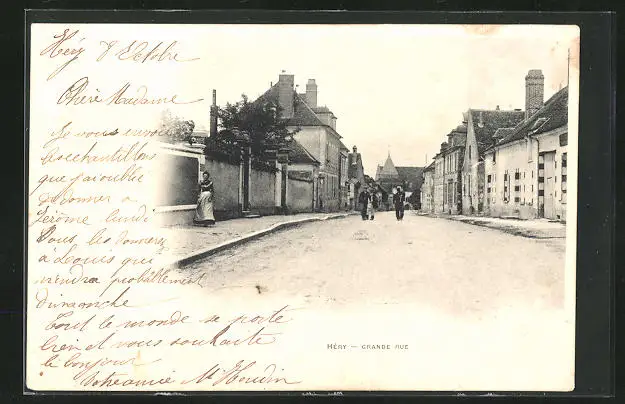 Héry 8 Octobre
Chère Madame
Je vous envoie
les echantillons
que j'ai oublié
de donner à
Jérôme lundi
Vous les donnerez
à Louis qui
viendra probablement
dimanche
Tout le monde se porte
bien et vous souhaite
le bonjour
Votre amie M. Houdin
HÉRY — GRANDE RUE